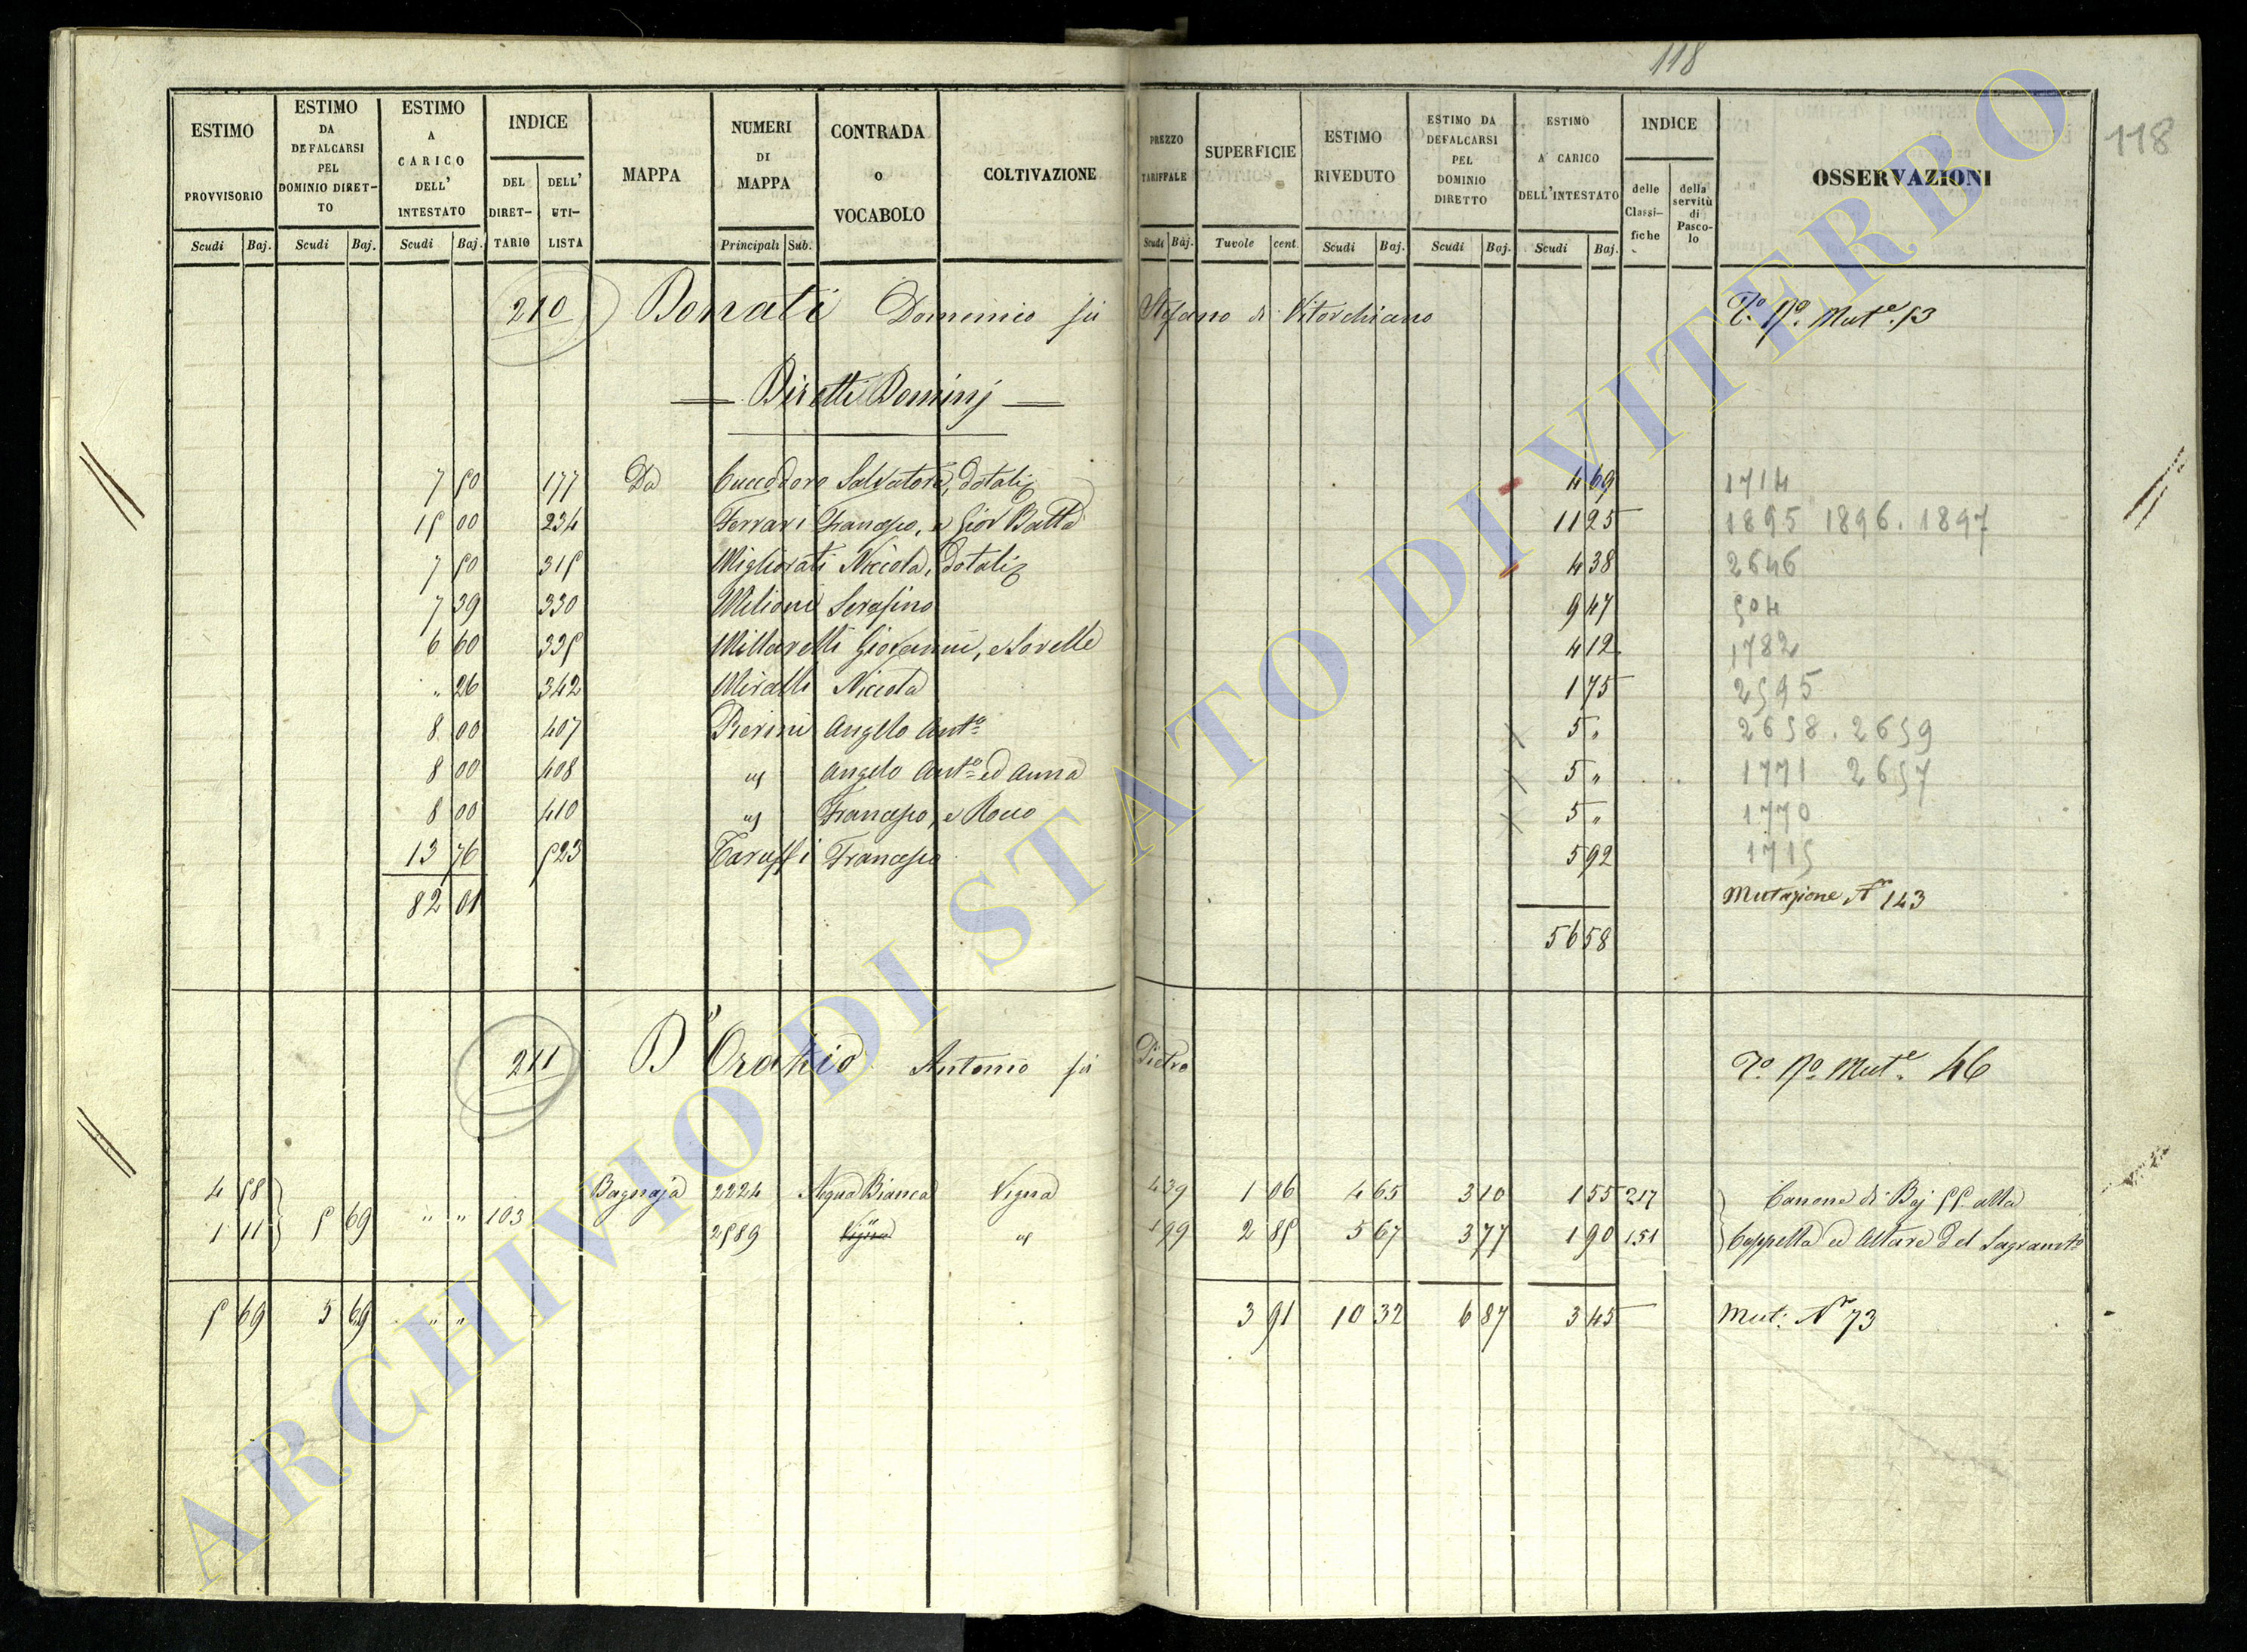 118
118
ESTIMO PROVVISORIO Scudi Baj.
ESTIMO DA DEFALCARSI PEL DOMINIO DIRET-TO Scudi Baj.
ESTIMO A CARICO DELL' INTESTATO Scudi Baj.
INDICE DEL DIRET-TARIO DELL' UTI-LISTA
MAPPA
NUMERI DI MAPPA Principali Sub.
CONTRADA o VOCABOLO
COLTIVAZIONE
PREZZO TARIFFALE Scudi Baj.
SUPERFICIE Tavole cent.
ESTIMO RIVEDUTO Scudi Baj.
ESTIMO DA DEFALCARSI PEL DOMINIO DIRETTO Scudi Baj.
ESTIMO A CARICO DELL'INTESTATO Scudi Baj.
INDICE delle Classi-fiche della servitù di Pasco-lo
OSSERVAZIONI
210 Donati Domenico fù Stefano di Vitorchiano Mut.e 13
Diretti Dominj
7 50 177 Da Cuccodoro Salvatore, dotali 4 69 1714
15 00 234 Ferrari Francesco, e Gio Batta 11 25 1895 1896. 1897
7 50 315 Migliorati Niccola, dotali 4 38 2646
7 39 330 Milioni Serafino 9 47 504
6 60 335 Millarelli Giovanni, e Sorelle 4 12 1782
" 26 342 Miralli Niccola 1 75 2595
8 00 407 Pierini Angelo Ant.o 5 " 2658. 2659
8 00 408 Angelo Ant.o ed Anna 5 " 1771 2657
8 00 410 Francesco, e Rocco 5 " 1770
13 76 523 Taruffi Francesco 5 92 1715
82 01 Mutazione N 143
56 58
211 D'Orazio Antonio fù Pietro Mut.e 46
4 58 Bagnaja 2224 Acqua Bianca Vigna 4 39 1 06 4 65 3 10 1 55 217 Canone di Baj 55 alla
1 11 5 69 " " 103 2589 Vigna 1 99 2 85 5 67 3 77 1 90 151 Cappella ed Altare del Sagram.to
5 69 5 69 " " 3 91 10 32 6 87 3 45 Mut: N 73
ARCHIVIO DI STATO DI VITERBO